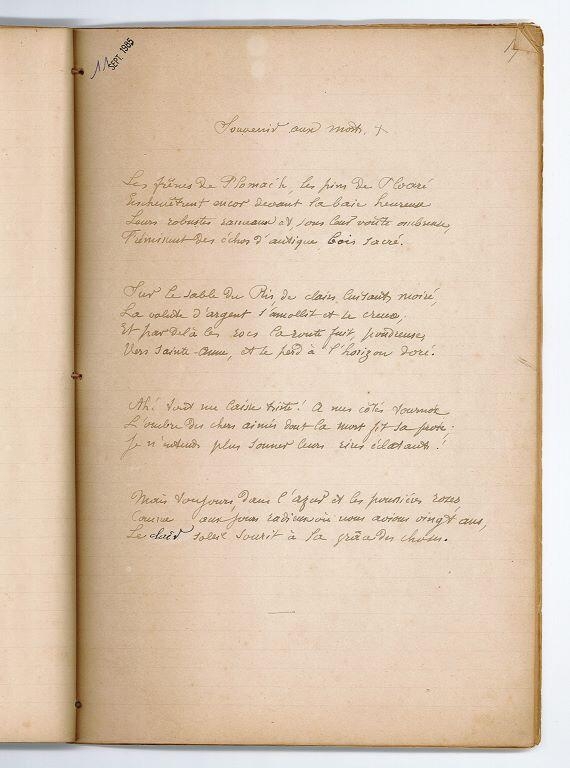 11 SEPT. 1985
Souvenir aux morts. +
Les frênes de Plomac'h, les pins de Ploaré
Enchevêtrent encor devant la baie heureuse
Leurs robustes rameaux et, sous leur voûte ombreuse,
Frémissent des échos d'antique bois sacré.
Sur le sable du Ris, de clairs luisants moiré,
La volute d'argent s'amollit et se creuse,
Et par delà les rocs la route fuit, poudreuse,
Vers Sainte-Anne, et se perd à l'horizon doré.
Ah! tout me laisse triste! A mes côtés tournoie
L'ombre des chers aimés dont la mort fit sa proie;
Je n'entends plus sonner leurs rires éclatants!
Mais toujours, dans l'azur et les poussières roses
Comme aux jours radieux où nous avions vingt ans,
Le clair soleil sourit à la grâce des choses.